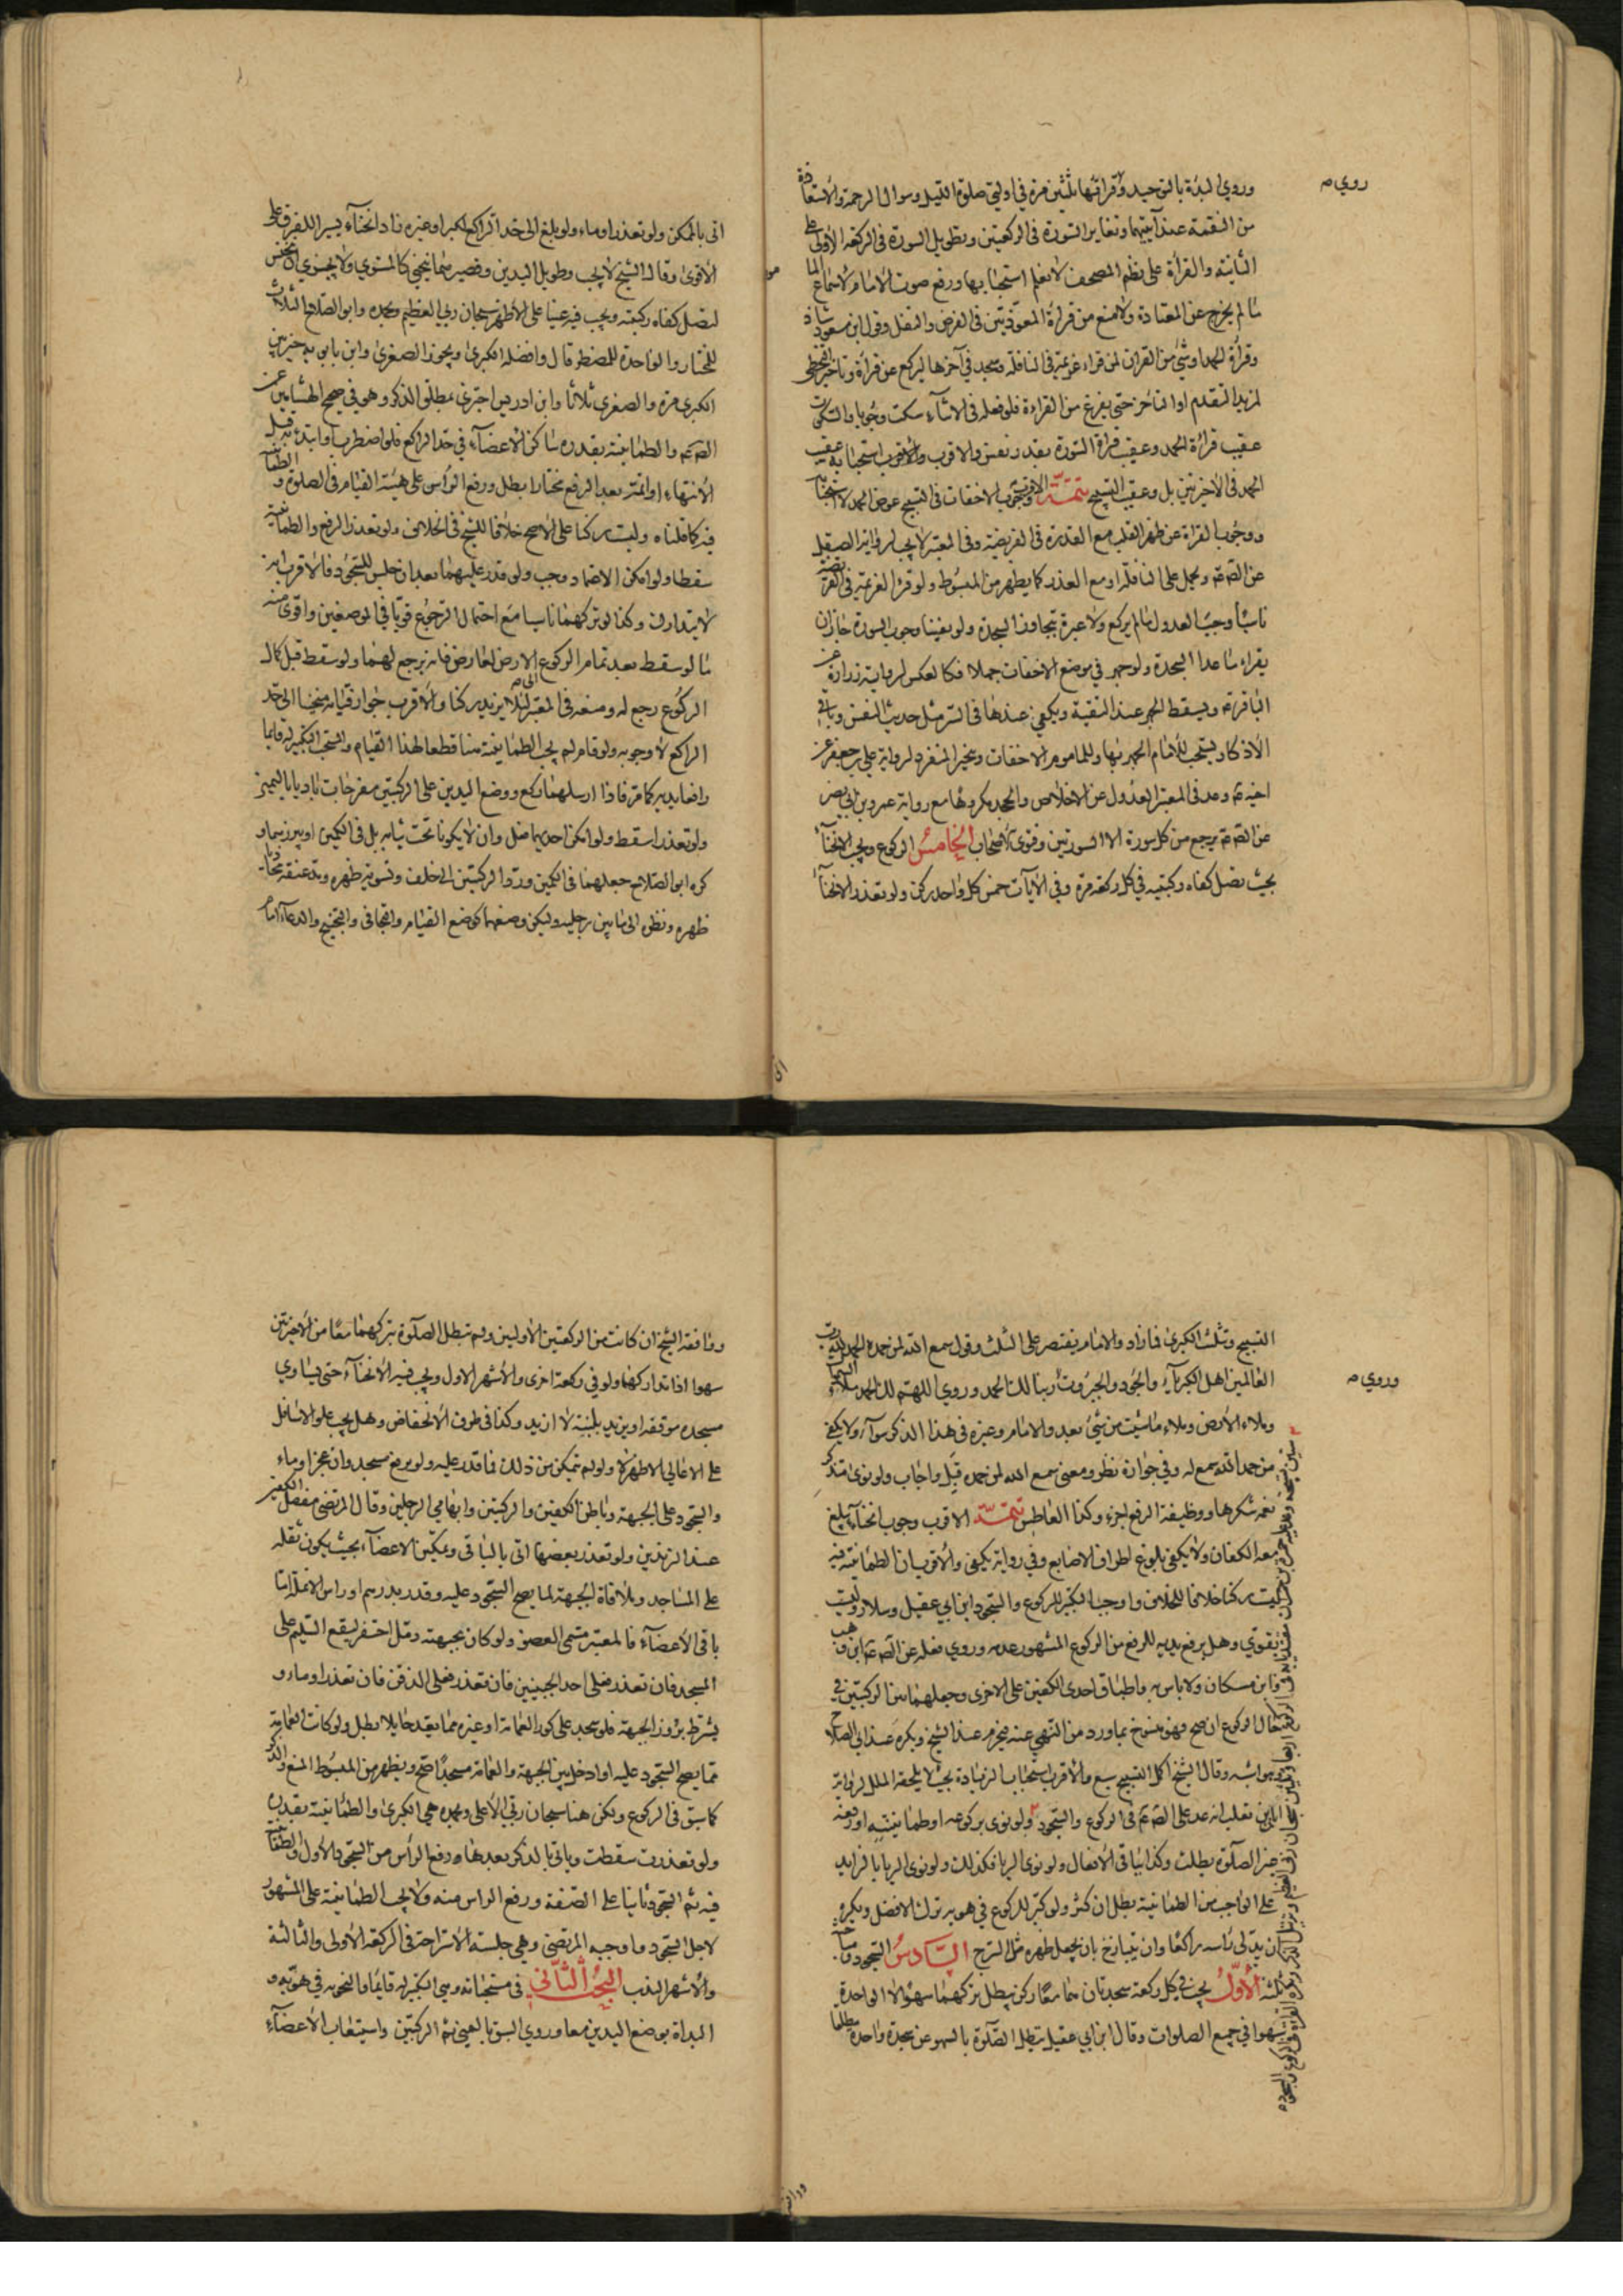 وروي البدأة بالتوحيد وقرائتها ثلثين مرة في اوليتي صلوة الليل وسوال الرحمة والاستعاذة
روي
من النقمة عند آيتيهما وتغاير السورة في الركعتين وتطويل السورة في الركعة الاولى على
الثانية والقرأة على نظم المصحف لانعلم استحبابها ورفع صوت الامام لاسماع الما
ما لم يخرج عن المعتاد ولا منع من قرأة المعوذتين في الفرض والنفل وقول ابن مسعود شاذ
وقرأة الحمد او شئ من القران لمن قراء عزيمة في النافلة وسجد في آخرها ليركع عن قرأة وتاخير التخطي
لمريد التقدم او التاخر حتى يفرغ من القراءة فلو فعله في الاثناء سكت وجوبا والسكوت
عقيب قرأة الحمد وعقيب قرأة السورة بقدر نفس والاقرب استحبابه عقيب
الحمد في الاخيرتين بل وعقيب التسبيح تتمة الاقرب وجوب الاخفات في التسبيح عوض الحمد لا استحبابا
ووجوب القراة عن ظهر القلب مع القدرة في الفريضة وفي المعتبر لا يجب لرواية الصيقل
عن الصم ويحمل على النافلة او مع العذر كما يظهر من المبسوط ولو قرء العزيمة في الفريضة
ناسيا وجب العدول ما لم يركع ولا عبرة بتجاوز السجدة ولو نفينا وجوب السورة جاز ان
يقراء ما عدا السجدة ولو جهر في موضع الاخفات جهلا فكالعكس لرواية زرارة عن
الباقر ع ويسقط الجهر عند التقية ويكفي عندها في السر مثل حديث النفس وباقي
الاذكار يستحب للامام الجهر بها وللماموم الاخفات وتخير المنفرد لرواية علي بن جعفر عن
اخيه ع وعد في المعتبر العدول عن الاخلاص والجحد مكروها مع رواية عمرو بن ابي نصر
عن الصم يرجع من كل سورة الا السورتين وفتوى الاصحاب الخامس الركوع ويجب الانحناء
بحيث تصل كفاه ركبتيه في كل ركعة مرة وفي الآيات خمس كل واحد ركن ولو تعذر الانحناء
اتى بالممكن ولو تعذر اوماء ولو بلغ الى حد الراكع لكبر او غيره زاد انحناء يسيرا للفرق على
الاقوى وقال الشيخ لا يجب وطويل اليدين وقصيرهما ينحني كالمستوي ولا يجزي ان ينخنس
لتصل كفاه ركبته ويجب فيه عينا على الاظهر سبحان ربي العظيم وبحمده وابو الصلاح الثلاث
للمختار والواحدة للمضطر قال وافضله الكبرى ويجوز الصغرى وابن بابويه خير بين
الكبرى مرة والصغرى ثلاثا وابن ادريس اجتزى بمطلق الذكر وهو في صحيح الهشامين عن
الصم والطمأنينة بقدره ساكن الاعضاء في حد الراكع فلو اضطرب او ابتدء به قبل
الانتهاء او اتمه بعد الرفع مختارا بطل ورفع الراس على هيئة القيام في الصلوة والطمأنينة
فيه كما قلناه وليست ركنا على الاصح خلافا للشيخ في الخلاف ولو تعذر الرفع والطمأنينة
سقطا ولو امكن الاعتماد وجب ولو قدر عليهما بعد ان جلس للسجود فالاقرب انه
لا يتدارك وكذا لو تركهما ناسيا مع احتمال الرجوع قويا في الموضعين واقوى منه
ما لو سقط بعد تمام الركوع الى الارض لعارض فانه يرجع لهما ولو سقط قبل كمال
الركوع رجع له ومنعه في المعتبر لئلا يزيد ركنا والاقرب جواز قيامه منحنيا الى حد
الراكع لا وجوبه ولو قام لم يجب الطمأنينة منا قطعا لهذا القيام ويستحب التكبير له قائما
رافعا يديه كما مر فاذا ارسلهما ركع ووضع اليدين على الركبتين مفرجات باديا باليمين
ولو تعذر اسقط ولو امكن احديهما فعل وان لا يكونا تحت ثيابه بل في الكمين او يبرزهما و
كره ابو الصلاح جعلهما في الكمين ورد الركبتين الى خلف وتسوية ظهره ومد عنقه محاذيا
ظهره ونظره الى ما بين رجليه وليكن وضعهما كوضع القيام والتجافي والتجنيح والدعاء امام
الى
التسبيح وتثلث الكبرى فما زاد والامام يقتصر على الثلث وقول سمع الله لمن حمده الحمد لله رب
العالمين اهل الكبرياء والجود والجبروت ربنا لك الحمد وروي اللهم لك الحمد ملاء السماء
وروي
وملاء الارض وملاء ما شئت من شئ بعد والامام وغيره في هذا الذكر سواء ولا يكفي
من حمد الله سمع له وفي جوازه نظر ومعنى سمع الله لمن حمده قبل واجاب ولو نوى متذكر
نعمة شكرها ووظيفة الرفع اجزء وكذا العاطس تتمة الاقرب وجوب انحناء يبلغ
معه الكفان ولا يكفي بلوغ اطراف الاصابع وفي رواية يكفي والاقرب ان الطمانينة فيه
ليست ركنا خلافا للخلاف واوجب التكبير للركوع والسجود ابن ابي عقيل وسلار وليس
بقوي وهل يرفع يديه للرفع من الركوع المشهور عدمه وروي فعله عن الصم ابن وهب
وابن مسكان ولا باس به واطباق احدى الكفين على الاخرى وجعلهما بين الركبتين في
حال الركوع ان صح فهو منسوخ بما ورد من النهي عنه فيحرم عند الشيخ ويكره عند ابي الصلاح
وهو اشبه وقال الشيخ اكل التسبيح سبع والاقرب استحباب الزيادة بحيث لا يلحقه الملل لرواية
ابان بن تغلب انه عد على الصم في الركوع والسجود ولو نوى بركوعه او طمانينته او رفعه
غير الصلوة بطلت وكذا باقي الافعال ولو نوى الريا فكذلك ولو نوى الريا بالزايد
على الواجب من الطمانينة بطل ان كثر ولو كبر للركوع في هويه ترك الافضل ويكره
ان يدلي راسه راكعا وان يتبازخ بان يجعل ظهره مثل السرج السادس السجود ومباحثه
ثلثة الاول يجب في كل ركعة سجدتان هما معا ركن يبطل بتركهما سهوا لا الواحدة
سهوا في جميع الصلوات وقال ابن ابي عقيل يبطل الصلوة بالسهو عن سجدة واحدة مطلقا
ووافقه الشيخ ان كانت من الركعتين الاوليين ولم تبطل الصلوة بتركهما معا من الاخيرتين
سهوا اذا تداركهما ولو في ركعة اخرى والاشهر الاول ويجب فيه الانحناء حتى يساوي
مسجده موقفه او يزيد بلبنة لا ازيد وكذا في طرف الانخفاض وهل يجب علو الاسافل
على الاعالي الاظهر لا ولو لم يتمكن من ذلك فما قدر عليه ولو برفع مسجد وان عجز اوماء
والسجود على الجبهة وباطن الكفين والركبتين وابهامي الرجلين وقال المرتضى مفصل الكفين
عند الزندين ولو تعذر بعضها اتى بالباقي وتمكين الاعضاء بحيث يكون ثقله
على المساجد وملاقاة الجبهة لما يصح السجود عليه وقدر بدرهم او راس الانملة اما
باقي الاعضاء فالمعتبر مسمى العضو ولو كان بجبهته دمل احتفر ليقع السليم على
المسجد فان تعذر فعلى احد الجبينين فان تعذر فعلى الذقن فان تعذر اوماء و
يشترط بروز الجبهة فلو سجد على كور العمامة او غيره مما يعد حايلا بطل ولو كانت العمامة
مما يصح السجود عليه او ادخل بين الجبهة والعمامة مسجدا صح ويظهر من المبسوط المنع والذكر
كما سبق في الركوع ولكن هنا سبحان ربي الاعلى وبحمده هي الكبرى والطمانينة بقدره
ولو تعذرت سقطت وياتي بالذكر بعدها ورفع الرأس من السجود الاول والطمانينة
فيه ثم السجود ثانيا على الصفة ورفع الراس منه ولا يجب الطمانينة على المشهور
لاجل السجود وما وجبه المرتضى وهي جلسة الاستراحة في الركعة الاولى والثالثة
والاشهر الندب البحث الثاني في مستحباته وهي التكبير له قايما والتخوية في هويه و
البداة بوضع اليدين معا وروي السبق باليمنى ثم الركبتين واستيعاب الاعضاء
ووافقه